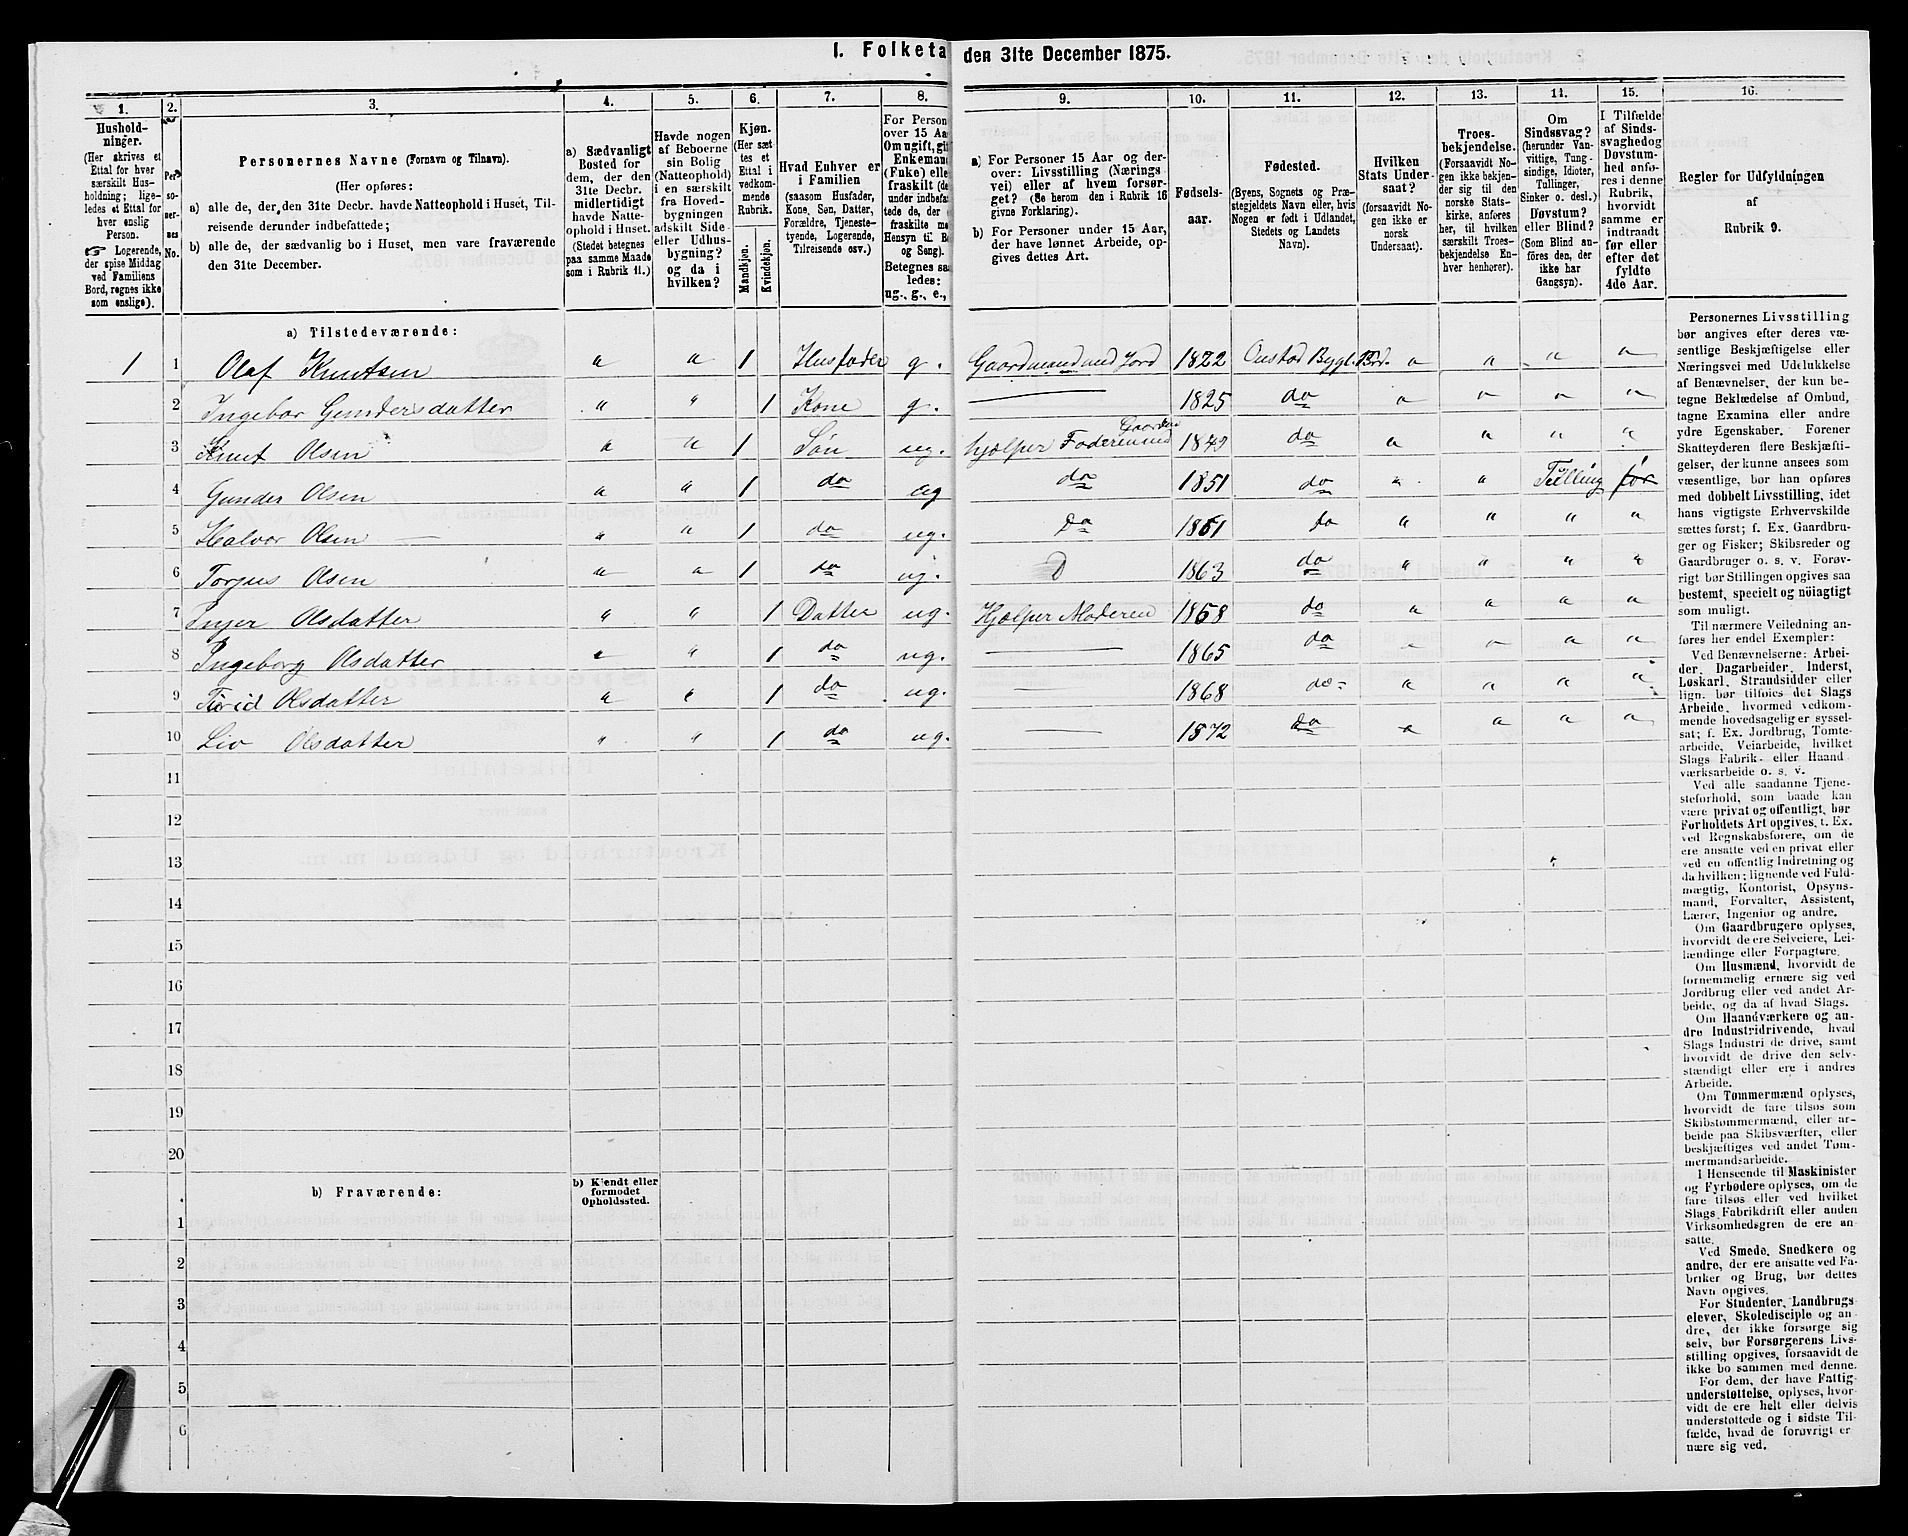 I. Folketa den 31te December 1875.
1. 2. 3. 4. 5. 6. 7. 8. 9. 10. 11. 12. 13. 14. 15. 16.
Hushold-
ninger.
(Her skrives et
Ettal for hver
særskilt Hus-
holdning; lige-
ledes et Ettal for
hver enslig
Person.
☞ Logerende,
der spise Middag
ved Familiens
Bord, regnes ikke
som enslige).
Per-
so-
ner-
nes
No.
Personernes Navne (Fornavn og Tilnavn).
(Her opføres:
a) alle de, der den 31te Decbr. havde Natteophold i Huset, Til-
reisende derunder indbefattede;
b) alle de, der sædvanlig bo i Huset, men vare fraværende
den 31te December.
a) Sædvanligt
Bosted for
dem, der den
31te Decbr.
midlertidigt
havde Natte-
ophold i Huset.
(Stedet betegnes
paa samme Maade
som i Rubrik 11.)
Havde nogen
af Beboerne
sin Bolig
(Natteophold)
i en særskilt
fra Hoved-
bygningen
adskilt Side-
eller Udhus-
bygning?
og da i
hvilken?
Kjøn.
(Her sæt-
tes et
Ettal i
vedkom-
mende
Rubrik.
Mandkjøn.
Kvindekjøn.
Hvad Enhver er
i Familien
(saasom Husfader,
Kone, Søn, Datter,
Forældre, Tjeneste-
tyende, Logerende,
Tilreisende osv.)
For Person
over 15 Aa
Om ugift, gif
Enkemand
(Enke) elle
fraskilt (de
under indbefat-
tede de, der e
fraskilte me
Hensyn til B
og Seng).
Betegnes saa
ledes:
ug., g., e.,
a) For Personer 15 Aar og der-
over: Livsstilling (Nærings
vei) eller af hvem forsør-
get? (Se herom den i Rubrik 16
givne Forklaring).
b) For Personer under 15 Aar,
der have lønnet Arbeide, op-
gives dettes Art.
Fødsels-
aar.
Fødested.
(Byens, Sognets og Præ-
stegjeldets Navn eller, hvis
Nogen er født i Udlandet,
Stedets og Landets
Navn).
Hvilken
Stats Under-
saat?
(forsaavidt No-
gen ikke er
norsk
Undersaat).
Troes-
bekjendelse.
(Forsaavidt No-
gen ikke bekjen-
der sig til den
norske Stats-
kirke, anføres
her, til hvilken
særskilt Troes-
bekjendelse En-
hver henhører).
Om
Sindssvag?
(herunder Van-
vittige, Tung-
sindige, Idioter,
Tullinger,
Sinker o. desl.)
Døvstum?
eller Blind?
(Som Blind an-
føres den, der
ikke har
Gangsyn).
I Tilfælde
af Sinds-
svaghed og
Døvstum-
hed anfø-
res i denne
Rubrik,
hvorvidt
samme er
indtraadt
før eller
efter det
fyldte
4de Aar.
Regler for Udfyldningen
af
Rubrik 9.
a) Tilstedeværende:
1 1 Olaf Knutsen " " 1 Husfader g. Gaardmand med Jord 1822 Onstad Bygl. Prd. " " " "
2 Ingebor Gundersdatter " " 1 Kone g. — 1825 do " " " "
3 Knut Olsen " " 1 Søn ug. hjælper Faderen med Gaarden 1849 do " " " "
4 Gunder Olsen " " 1 do ug do 1851 do " " Tulling før
5 Halvor Olsen " " 1 do ug. Do 1861 do " " " "
6 Torjus Olsen " " 1 do ug. D 1863 do " " " "
7 Inger Olsdatter " " 1 Datter ug. Hjælper Moderen 1858 do " " " "
8 Ingeborg Olsdatter " " 1 do ug. — 1865 do " " " "
9 Turid Olsdatter " " 1 do ug. — 1868 do " " " "
10 Liv Olsdatter " " 1 do ug. — 1872 do " " " "
11
12
13
14
15
16
17
18
19
20
b) Fraværende:
b) Kjendt eller
formodet
Opholdssted.
1
2
3
4
5
6
Personernes Livsstilling
bør angives efter deres væ-
sentlige Beskjæftigelse eller
Næringsvei med Udelukkelse
af Benævnelser, der kun be-
tegne Beklædelse af Ombud,
tagne Examina eller andre
ydre Egenskaber. Forener
Skatteyderen flere Beskjæfti-
gelser, der kunne ansees som
væsentlige, bør han opføres
med dobbelt Livsstilling, idet
hans vigtigste Erhvervskilde
sættes først; f. Ex. Gaardbru-
ger og Fisker; Skibsreder og
Gaardbruger o. s. v. Forøv-
rigt bør Stillingen opgives saa
bestemt, specielt og nøiagtigt
som muligt.
Til nærmere Veiledning an-
føres her endel Exempler:
Ved Benævnelserne: Arbei-
der, Dagarbeider, Inderst,
Løskarl, Strandsidder eller
lign. bør tilføies det Slags
Arbeide, hvormed vedkom-
mende hovedsagelig er syssel-
sat; f. Ex. Jordbrug, Tomte-
arbeide, Veiarbeide, hvilket
Slags Fabrik- eller Haand
værksarbeide o. s. v.
Ved alle saadanne Tjene-
steforhold, som baade kan
være privat og offentligt, bør
Forholdets Art opgives, t. Ex.
ved Regnskabsførere, om de
ere ansatte ved en privat eller
ved en offentlig Indretning og
da hvilken; lignende ved Fuld-
mægtig, Kontorist, Opsyns-
mand, Forvalter, Assistent,
Lærer, Ingeniør og andre.
Om Gaardbrugere oplyses,
hvorvidt de ere Selveiere, Lei-
lændinge eller Forpagtere.
Om Husmænd, hvorvidt de
fornemmelig ernære sig ved
Jordbrug eller ved andet Ar-
beide, og da af hvad Slags.
Om Haandværkere og an-
dre Industridrivende, hvad
Slags Industri de drive, samt
hvorvidt de drive den selv-
stændigt eller ere i andres
Arbeide.
Om Tømmermænd oplyses,
hvorvidt de fare tilsøs som
Skibstømmermænd, eller ar-
beide paa Skibsværfter, eller
beskjæftiges ved andet Tøm-
mermandsarbeide.
I Henseende til Maskinister
og Fyrbødere oplyses, om de
fare tilsøs eller ved hvilket
Slags Fabrikdrift eller anden
Virksomhedsgren de ere an-
satte.
Ved Smede, Snedkere og
andre, der ere ansatte ved Fa-
briker og Brug, bør dettes
Navn opgives.
For Studenter, Landbrugs-
elever, Skoledisciple og an-
dre, der ikke forsørge sig
selv, bør Forsørgerens Livs-
stilling opgives, forsaavidt de
ikke bo sammen med denne.
For dem, der have Fattig-
understøttelse, oplyses, hvor-
vidt de ere helt eller delvis
understøttede og i sidste Til-
fælde, hvad de forøvrigt er
nære sig ved.